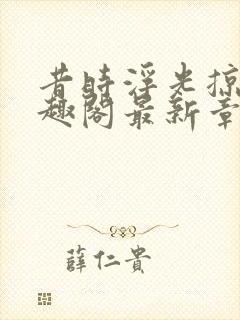 昔时浮光掠
趣阁最新章
薛仁貴